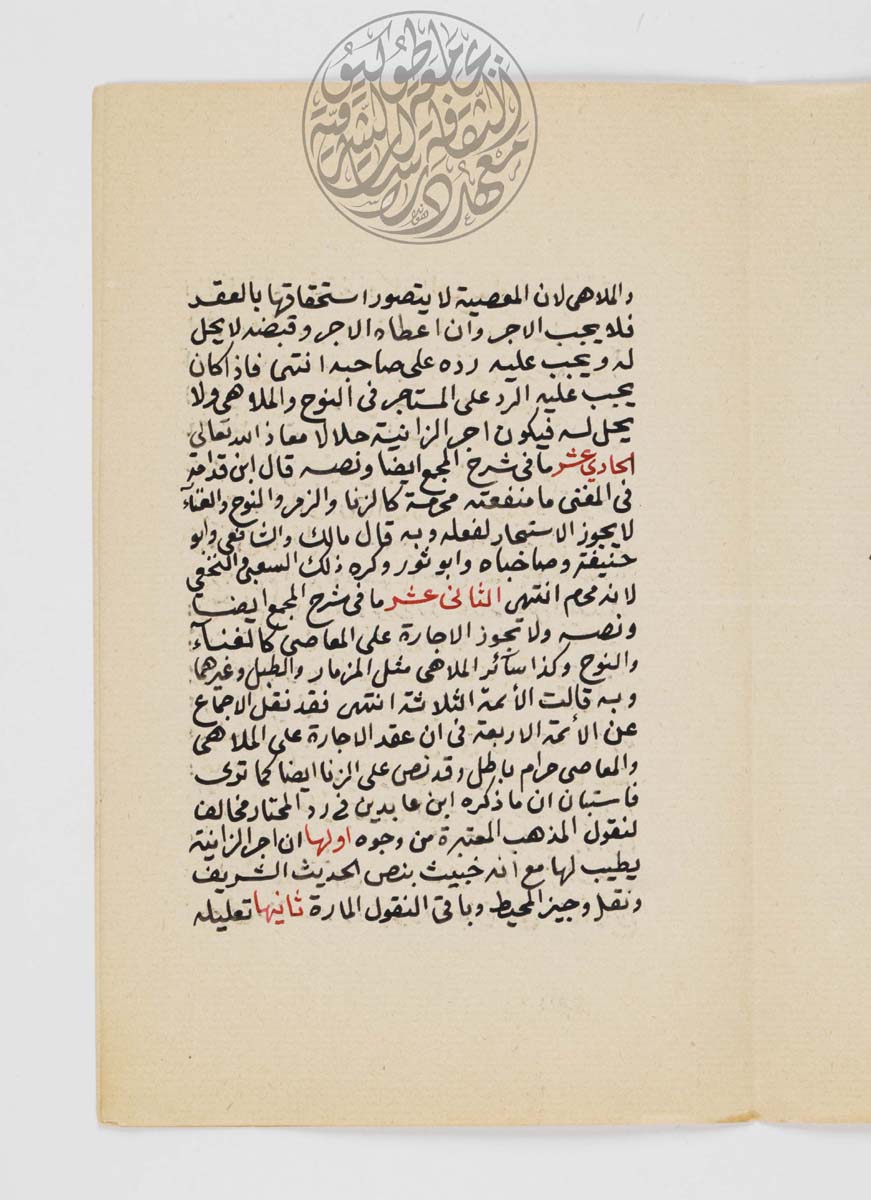 والملاهى لان المعصية لا يتصور استحقاقها بالعقد
فلا يجب الاجر وان اعطاه الاجر وقبضه لا يحل
له ويجب عليه رده على صاحبه انتهى فاذا كان
يجب عليه الرد على المستاجر فى النوح والملاهى ولا
يحل له فيكون اجر الزانية حلالا معاذ الله تعالى
الحادي عشر ما فى شرح المجمع ايضا ونصه قال ابن قدامة
فى المغنى ما منفعته محرمة كالزنا والزمر والنوح والغنآء
لا يجوز الاستيجار لفعله وبه قال مالك والشافعى وابو
حنيفة وصاحباه وابو ثور وكره ذلك الشعبى والنخعى
لانه محرم انتهى الثانى عشر ما فى شرح المجمع ايضا
ونصه ولا تجوز الاجارة على المعاصى كالغنآء
والنوح وكذا سآئر الملاهى مثل المزمار والطبل وغيرهما
وبه قالت الأئمة الثلاثة انتهى فقد نقل الاجماع
عن الأئمة الاربعة فى ان عقد الاجارة على الملاهى
والمعاصى حرام باطل وقد نص على الزنا ايضا كما ترى
فاستبان ان ما ذكره ابن عابدين فى رد المحتار مخالف
لنقول المذهب المعتبرة من وجوه اولها ان اجر الزانية
يطيب لها مع انه خبيث بنص الحديث الشريف
ونقل وجيز المحيط وباقى النقول المارة ثانيها تعليله